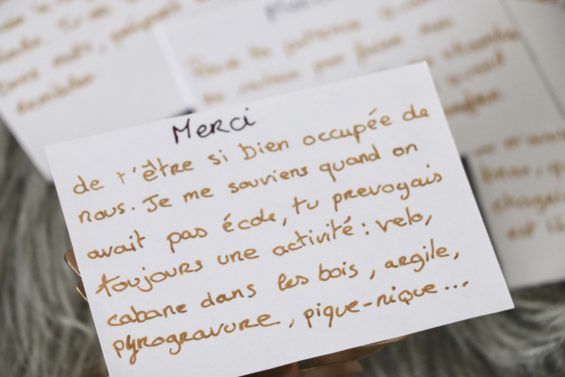 Merci
de t'être si bien occupée de
nous. Je me souviens quand on
avait pas école, tu prevoyais
toujours une activité : velo,
cabane dans les bois, argile,
pyrogravure, pique-nique...